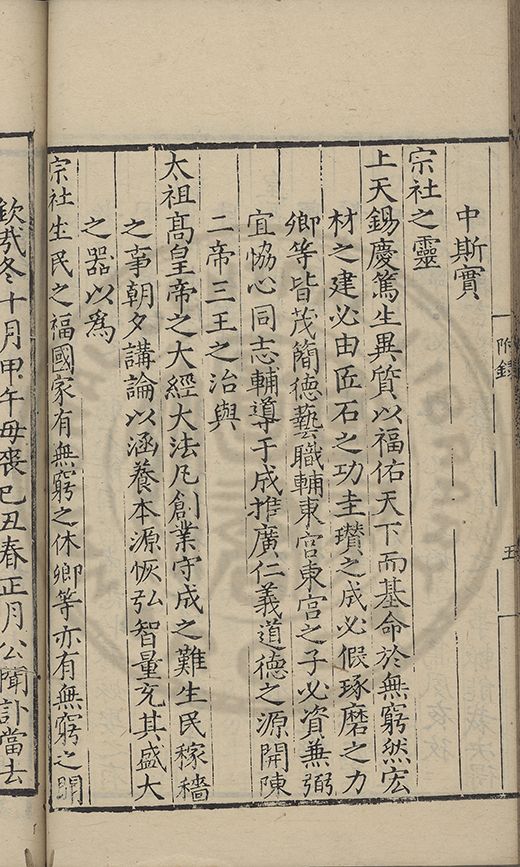 附錄
五
中斯實
宗社之靈
上天錫慶篤生異質以福佑天下而基命於無窮然宏
材之建必由匠石之功圭瓚之成必假琢磨之力
卿等皆茂簡德藝職輔東宮東宮之子必資兼弼
宜恊心同志輔導于成推廣仁義道德之源開陳
二帝三王之治與
太祖髙皇帝之大經大法凡創業守成之難生民稼穡
之事朝夕講論以涵養本源恢弘智量充其盛大
之器以爲
宗社生民之福國家有無窮之休卿等亦有無窮之聞
欽哉冬十月甲午母喪己丑春正月公聞訃當去